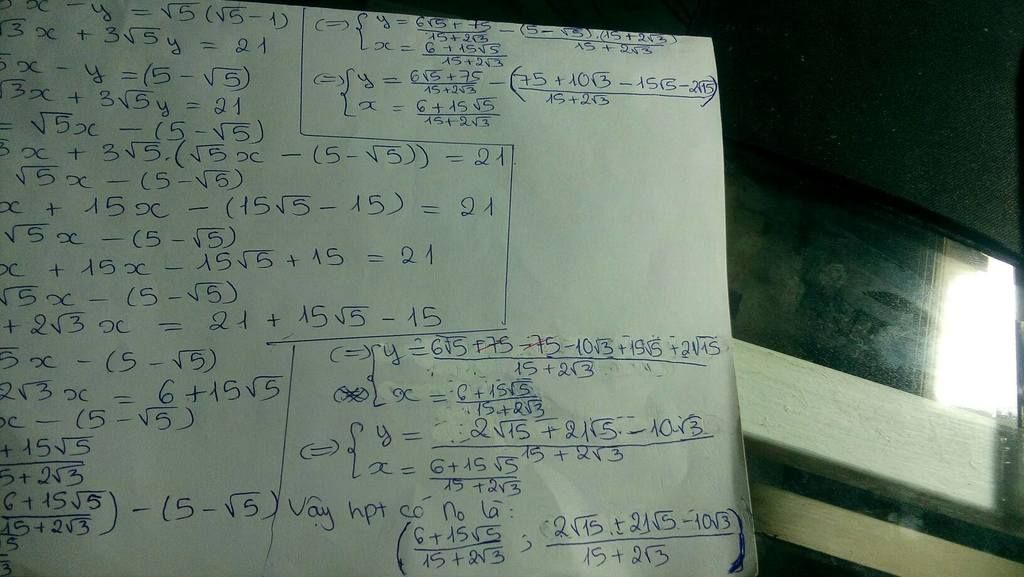 5x - y = √5(√5-1)
√3x + 3√5y = 21
5x - y = (5 - √5)
√3x + 3√5y = 21
= √5x - (5-√5)
3x + 3√5.(√5x - (5-√5)) = 21
√5x - (5-√5)
x + 15x - (15√5 - 15) = 21
√5x - (5-√5)
x + 15x - 15√5 + 15 = 21
√5x - (5-√5)
+ 2√3x = 21 + 15√5 - 15
5x - (5-√5)
2√3x = 6 + 15√5
x - (5-√5)
+ 15√5
5 + 2√3
(6+15√5 / 15+2√3) - (5-√5)
(=) { y = 6√5+75 / 15+2√3 - (5-√5).(15+2√3) / 15+2√3
x = 6+15√5 / 15+2√3
(=) { y = 6√5+75 / 15+2√3 - (75+10√3-15√5-2√15 / 15+2√3)
x = 6+15√5 / 15+2√3
(=) { y = 6√5+75-75-10√3+15√5+2√15 / 15+2√3
x = 6+15√5 / 15+2√3
(=) { y = 2√15+21√5-10√3 / 15+2√3
x = 6+15√5 / 15+2√3
Vậy hpt có n₀ là:
(6+15√5 / 15+2√3 ; 2√15+21√5-10√3 / 15+2√3)